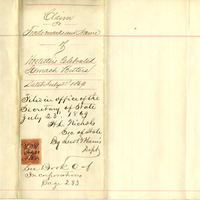 Claim
to
Trademark and Name
of
Hostetters Celebrated
Stomach Bitters
Dated July 1869
Filed in office of the
Secretary of State
July 23d 1869
H. L. Nichols
Sec of State
By
Depty
See Book C of
Incorporations
Page 283